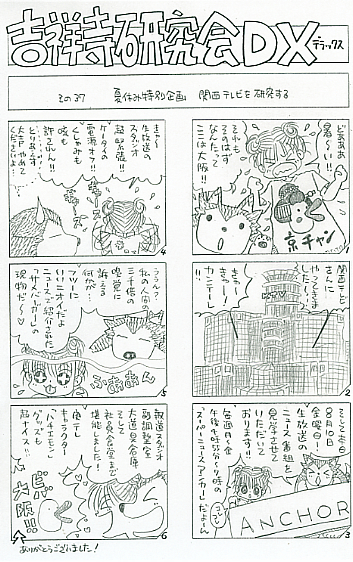 吉祥寺研究会DX
デラックス
その37 夏休み特別企画 関西テレビを研究する
どああぁ
暑〜い!!
それも
そのはず
なんたって
ここは大阪!!
京チャン
1
関西テレビに
やってきま
したー!!
きゃー
きゃー!
カンニー!
2
そして本日
8月10日
金曜日!
生放送の
ニュース番組を
見学させて
いただいて
おります!!
毎週月〜金
スーパーニュースアンカーだよーん
ANCHOR
3
きゃー
生放送の
スタジオ
超緊張!!
ケータイの
電源オフ!!
くしゃみも
咳も
許されん!!
とりあえず
大吉やめて
くださいよ!
4
ううん?
私の人間の
三千倍の
嗅覚に
訴える
何かが…
フツーに
いいニオイだよ
ニュースで紹介された
「サバカレー」の
現物だ〜♡
ふああん
5
報道スタジオ
副調整室
大道具倉庫
そして
社員食堂まで
堪能しました!
関テレ
キャラクター
「ハチエモン」
グッズも
超ナイス!!
大阪!!
6
ありがとうございました!